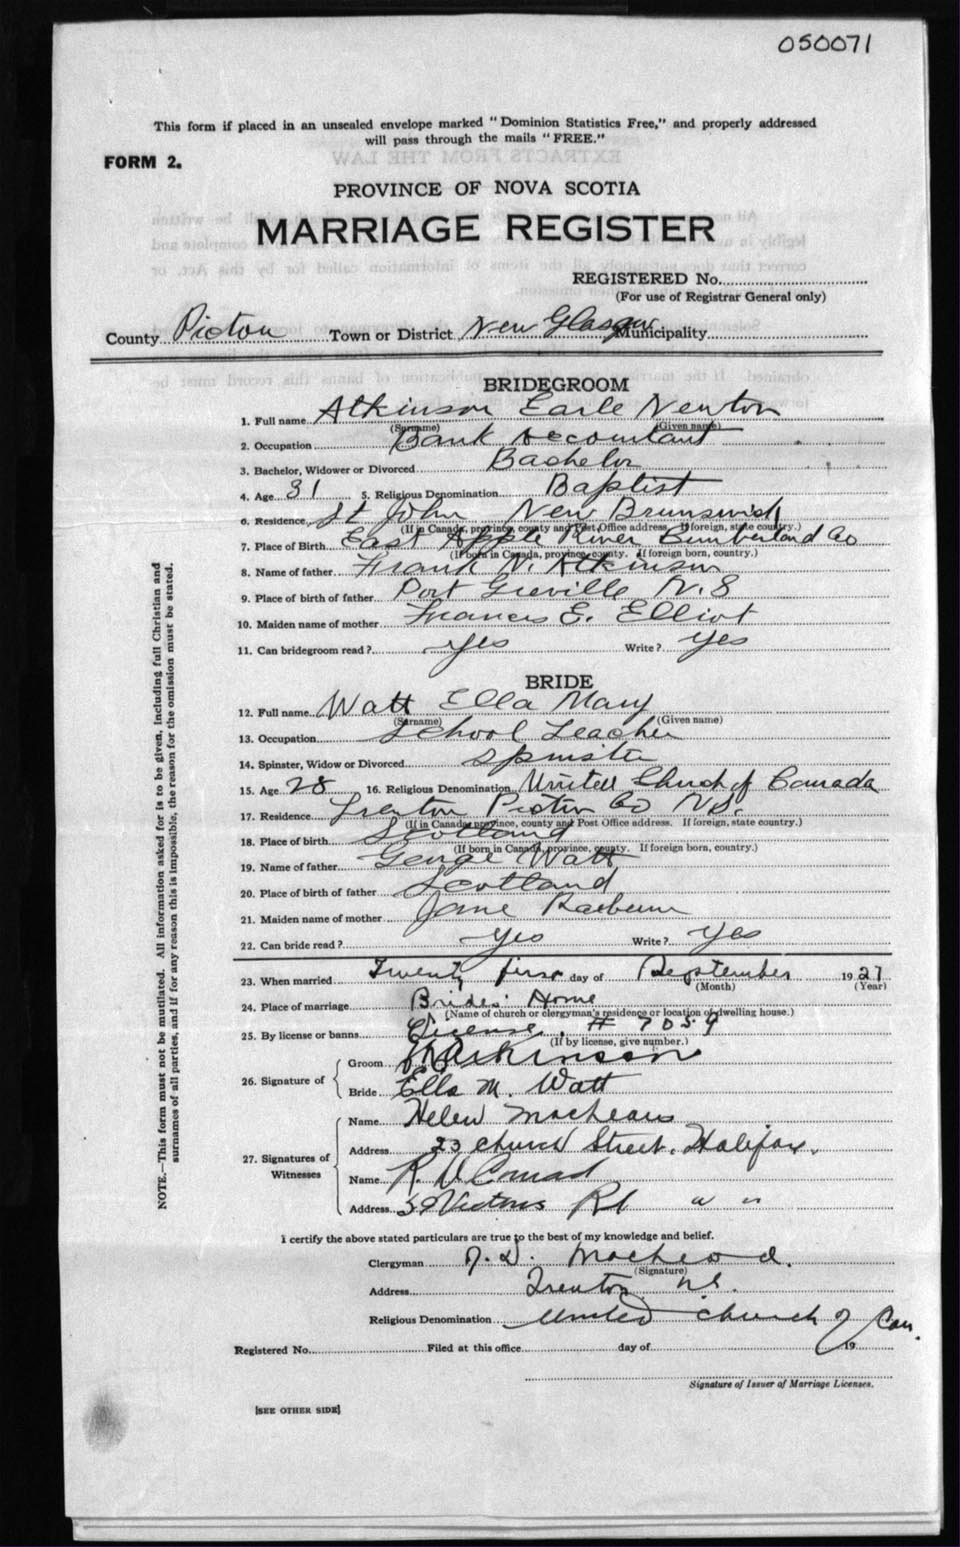 050071
This form if placed in an unsealed envelope marked "Dominion Statistics Free," and properly addressed
will pass through the mails "FREE."
FORM 2.
PROVINCE OF NOVA SCOTIA
MARRIAGE REGISTER
REGISTERED No.
(For use of Registrar General only)
County Pictou Town or District New Glasgow Municipality
BRIDEGROOM
1. Full name Atkinson Earle Newton
(Surname) (Given name)
2. Occupation Bank Accountant
3. Bachelor, Widower or Divorced Bachelor
4. Age 31 5. Religious Denomination Baptist
6. Residence St John New Brunswick
(If in Canada, province, county and Post Office address. If foreign, state country.)
7. Place of Birth East Apple River Cumberland Co
(If born in Canada, province, county. If foreign born, country.)
8. Name of father Frank N. Atkinson
9. Place of birth of father Port Greville N.S
10. Maiden name of mother Frances E. Elliot
11. Can bridegroom read? Yes Write? Yes
BRIDE
12. Full name Watt Ella Mary
(Surname) (Given name)
13. Occupation School Teacher
14. Spinster, Widow or Divorced Spinster
15. Age 28 16. Religious Denomination United Church of Canada
17. Residence Trenton Pictou Co N.S.
(If in Canada, province, county and Post Office address. If foreign, state country.)
18. Place of birth Scotland
(If born in Canada, province, county. If foreign born, country.)
19. Name of father George Watt
20. Place of birth of father Scotland
21. Maiden name of mother Jane
22. Can bride read? Yes Write? Yes
23. When married Twenty first day of September 1927
(Month) (Year)
24. Place of marriage Brides' Home
(Name of church or clergyman's residence or location of dwelling house.)
25. By license or banns License. # 7059
(If by license, give number.)
26. Signature of Groom Atkinson
Bride Ella M. Watt
27. Signatures of Witnesses
Name Helen
Address 23 Church Street. Halifax.
Name R. V Conrad
Address 59 Victoria Rd " "
I certify the above stated particulars are true to the best of my knowledge and belief.
Clergyman MacLeod.
(Signature)
Address Trenton N.S.
Religious Denomination United Church of Can.
Registered No. Filed at this office day of 19
Signature of Issuer of Marriage Licenses.
[SEE OTHER SIDE]
NOTE.—This form must not be mutilated. All information asked for is to be given, including full Christian and
surnames of all parties, and if for any reason this is impossible, the reason for the omission must be stated.